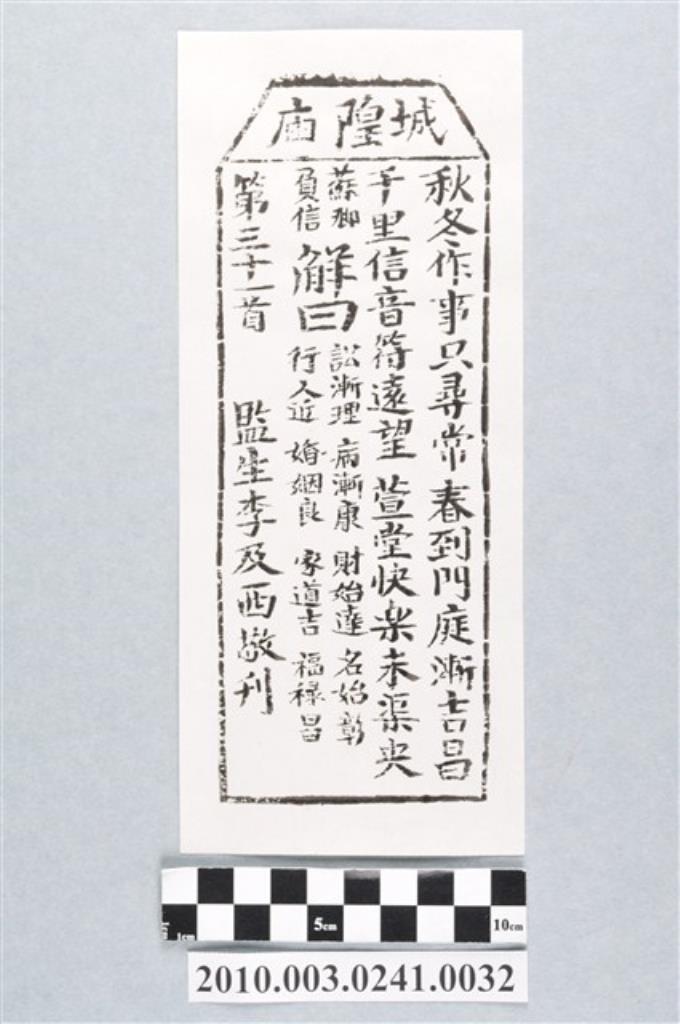 城隍庙
秋冬作事只尋常春到門庭漸吉昌
千里信音符遠望 萱堂快楽未渠央
蘇卿
負信
解曰
訟漸理 病漸康 財始達 名始彰
行人近 婚姻良 家道吉 福禄昌
第三十一首 監生李及西敬刊
1cm 5cm 10cm
2010.003.0241.0032